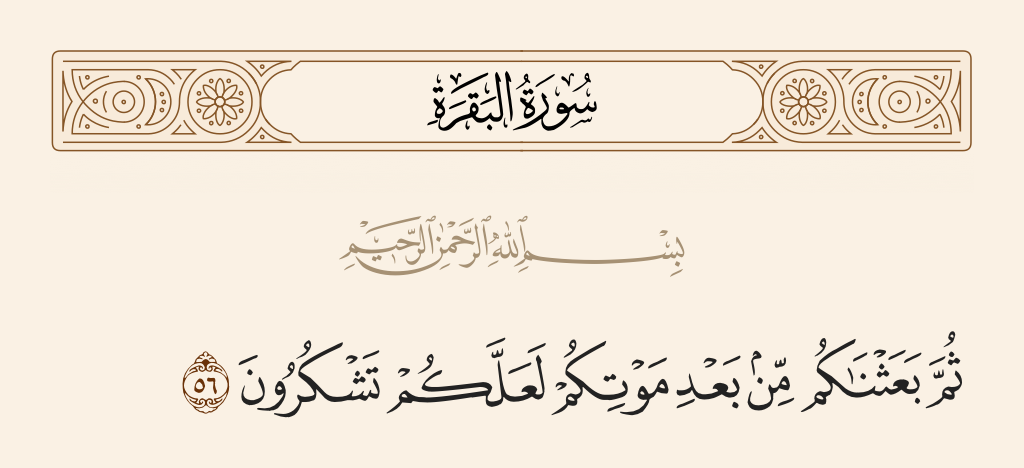 سُورَةُ البَقَرَةِ
بِسْمِ ٱللَّهِ ٱلرَّحْمَٰنِ ٱلرَّحِيمِ
ثُمَّ بَعَثْنَـٰكُم مِّنۢ بَعْدِ مَوْتِكُمْ لَعَلَّكُمْ تَشْكُرُونَ ٥٦